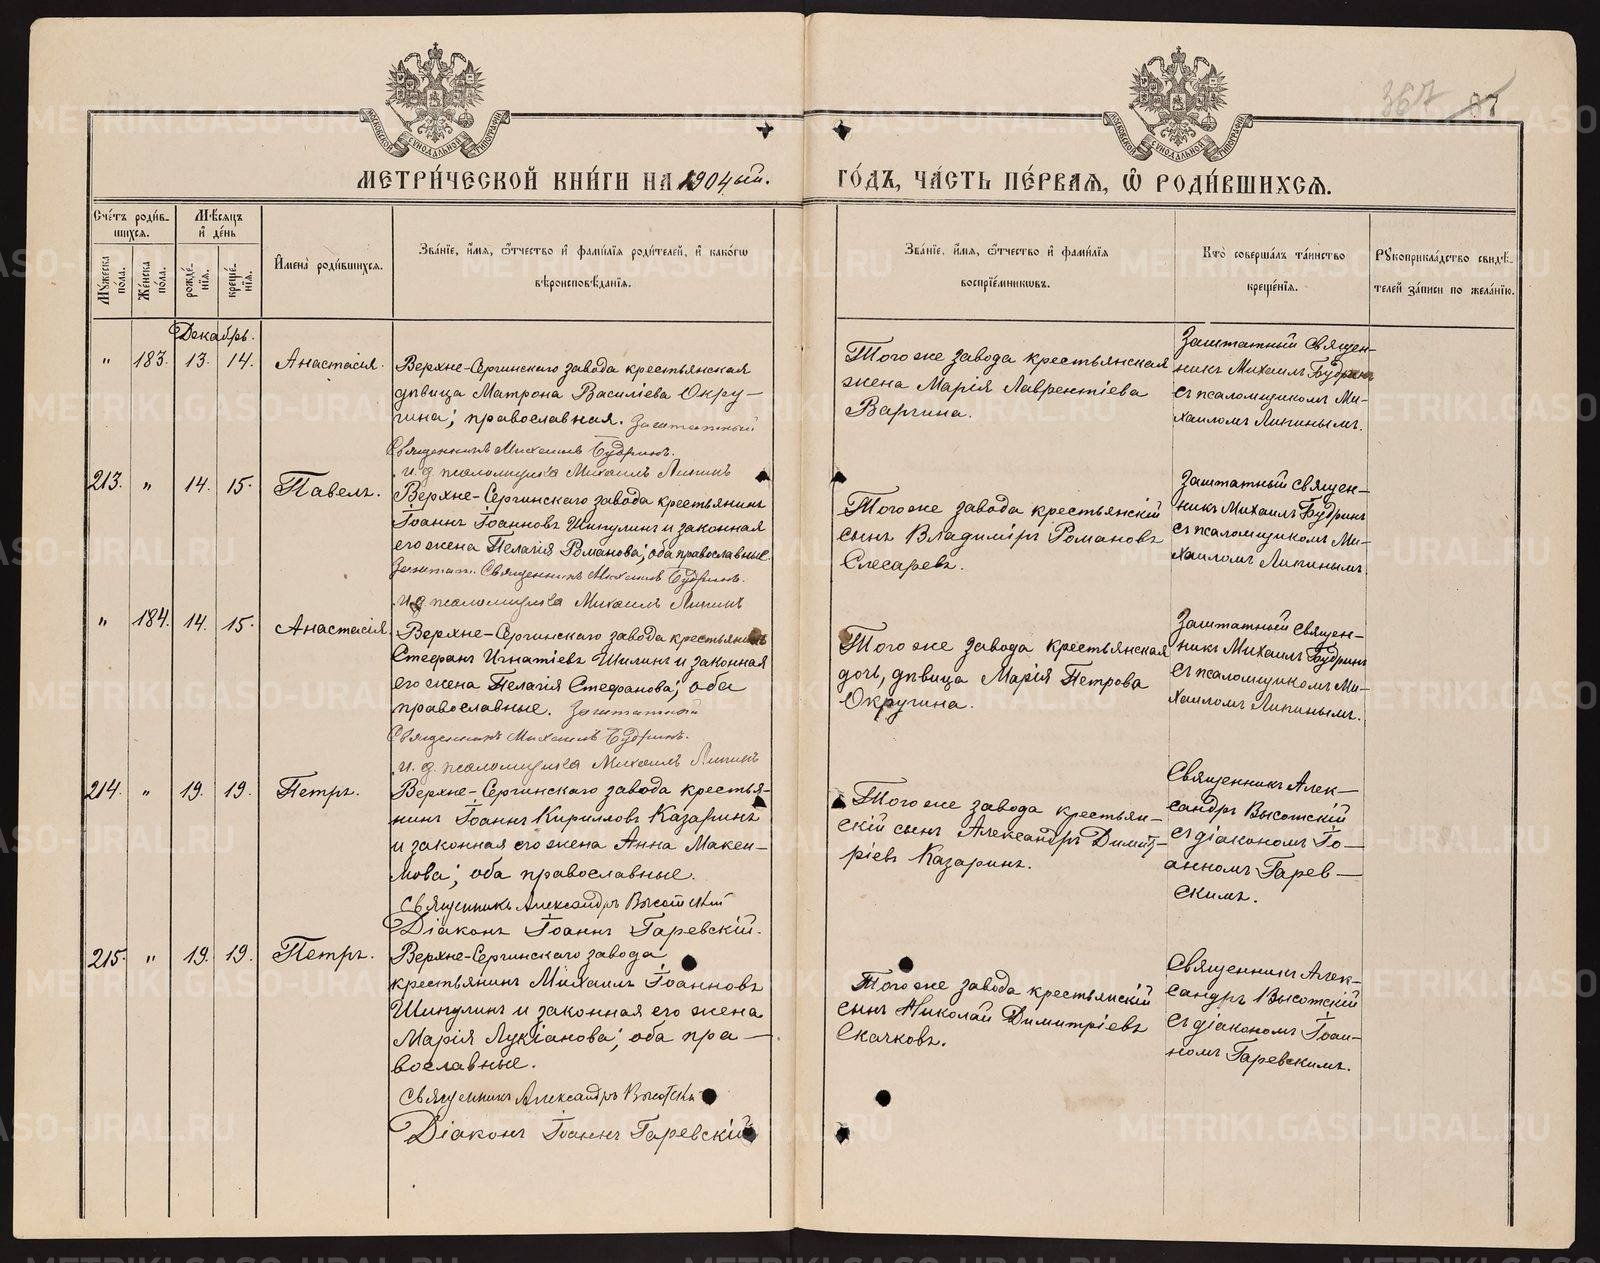 367 87
МОСКОВСКОЙ СѴНОДАЛЬНОЙ ТИПОГРАФІИ
МОСКОВСКОЙ СѴНОДАЛЬНОЙ ТИПОГРАФІИ
МЕТРИ́ЧЕСКОЙ КНИ́ГИ НА 1904ый.
ГО́ДЪ, ЧА́СТЬ ПЕ́РВАѦ, Ѿ РОДИ́ВШИХСѦ.
Сче́тъ роди́в-
шихсѧ.
Мужеска пола.
Же́нска пола.
Мѣ́сѧцъ
и҆ де́нь
рожде́нїѧ.
креще́нїѧ.
И҆мена̀ роди́вшихсѧ.
Зва́нїе, и҆́мѧ, ѻ҆́тчество и҆ фами́лїѧ роди́телей, и҆ како́гѡ
вѣроисповѣ́данїѧ.
Зва́нїе, и҆́мѧ, ѻ҆́тчество и҆ фами́лїѧ
воспрїе́мникѡвъ.
Кто̀ соверша́лъ та́инство
креще́нїѧ.
Рукоприкла́дство свидѣ́-
телей за́писи по жела́нїю.
Декабрь.
" 183. 13. 14. Анастасія.
Верхне-Сергинскаго завода крестьянская
дѣвица Матрона Василіева Окру-
гина; православная. Заштатный
Священникъ Михаилъ Будринъ.
и. д. псаломщика Михаилъ Липинъ
Того же завода крестьянская
жена Марія Лаврентіева
Варгина.
Заштатный священ-
никъ Михаилъ Будринъ
съ псаломщикомъ Ми-
хаиломъ Липинымъ.
213. " 14. 15. Павелъ.
Верхне-Сергинскаго завода крестьянинъ
Іоаннъ Іоанновъ Шипулинъ и законная
его жена Пелагія Романова; оба православные.
Заштат. Священникъ Михаилъ Будринъ.
и. д. псаломщика Михаилъ Липинъ
Того же завода крестьянскій
сынъ Владиміръ Романовъ
Слесаревъ.
Заштатный священ-
никъ Михаилъ Будринъ
съ псаломщикомъ Ми-
хаиломъ Липинымъ.
" 184. 14. 15. Анастасія.
Верхне-Сергинскаго завода крестьянинъ
Стефанъ Игнатіевъ Шилинъ и законная
его жена Пелагія Стефанова; оба
православные. Заштатный
Священникъ Михаилъ Будринъ.
и. д. псаломщика Михаилъ Липинъ
Того же завода крестьянская
дочь, дѣвица Марія Петрова
Округина.
Заштатный священ-
никъ Михаилъ Будринъ
съ псаломщикомъ Ми-
хаиломъ Липинымъ.
214. " 19. 19. Петръ.
Верхне-Сергинскаго завода крестья-
нинъ Іоаннъ Кирилловъ Казаринъ
и законная его жена Анна Макси-
мова; оба православные.
Священникъ Александръ Высотскій
Діаконъ Іоаннъ Гаревскій.
Того же завода крестьян-
скій сынъ Александръ Димит-
ріевъ Казаринъ.
Священникъ Алек-
сандръ Высотскій
съ діакономъ Іо-
анномъ Гарев-
скимъ.
215. " 19. 19. Петръ.
Верхне-Сергинскаго завода
крестьянинъ Михаилъ Іоанновъ
Шипулинъ и законная его жена
Марія Лукіанова; оба пра-
вославные.
Священникъ Александръ Высотскій
Діаконъ Іоаннъ Гаревскій
Того же завода крестьянскій
сынъ Николай Димитріевъ
Скачковъ.
Священникъ Алек-
сандръ Высотскій
съ діакономъ Іоан-
номъ Гаревскимъ.
METRIKI.GASO-URAL.RU